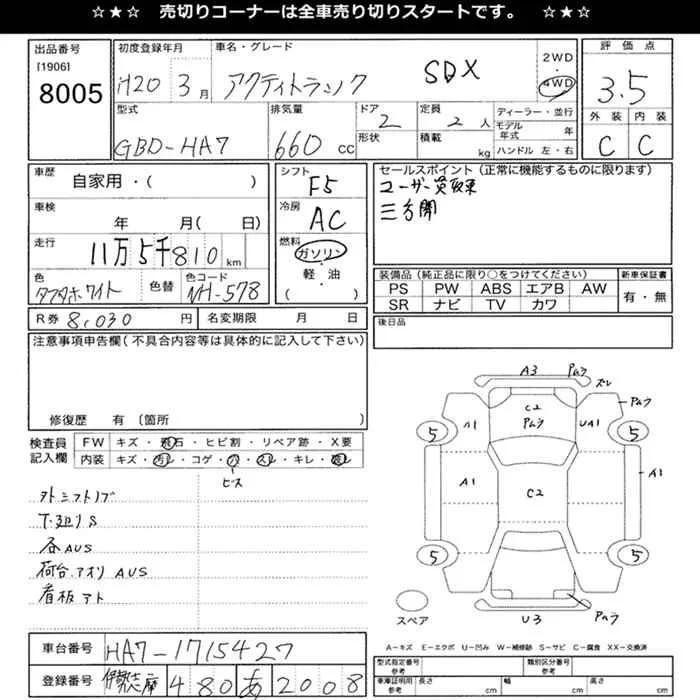 ☆★☆ 売切りコーナーは全車売り切りスタートです。 ☆★☆
出品番号 [1906] 8005
初度登録年月 H20年 3月
車名・グレード アクティトラック SDX
2WD 4WD
評価点 3.5
外装 C 内装 C
型式 GBD-HA7
排気量 660 cc
ドア 2 形状
定員 2人 積載 kg
ディーラー・並行
モデル年式 年
ハンドル 左・右
車歴 自家用・( )
車検 年 月( 日)
走行 11万5千810 km
色 タフタホワイト 色替 色コード NH-578
シフト F5
冷房 AC
燃料 ガソリン・軽・油 ( )
セールスポイント(正常に機能するものに限ります)
ユーザー買取車
三方開
装備品(純正品に限り○をつけてください) 新車保証書
PS PW ABS エアB AW 有・無
SR ナビ TV カワ
R券 8,030 円 名変期限 月 日
後日品
注意事項申告欄(不具合内容等は具体的に記入して下さい)
修復歴 有(箇所 )
検査員記入欄 FW キズ・飛石・ヒビ割・リペア跡・X要
内装 キズ・汚レ・コゲ・穴・スレ・キレ・破レ
ビス
下廻りS
各AUS
荷台、アオリ AUS
看板アト
A3 ズレ
C2
A1 UA1
5 5
A1 C2 A1
5 5
U3
スペア
A-キズ E-エクボ U-凹み W-補修跡 S-サビ C-腐食 XX-交換済
車台番号 HA7-1715427
登録番号 伊勢志摩 480 あ 2008
型式指定番号 参考 類別区分番号 参考
車庫証明用 参考 長さ cm 幅 cm 高さ cm